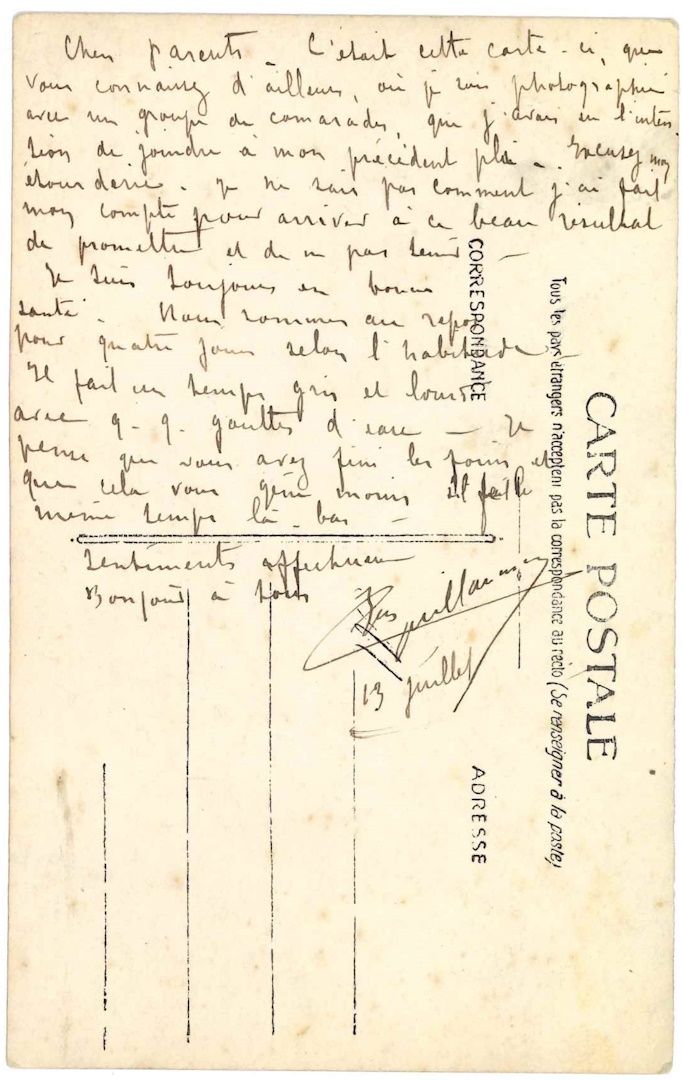 Chers parents _ C'était cette carte-ci, que
vous connaissez d'ailleurs, où je suis photographié
avec un groupe de camarades, que j'avais eu l'inten
tion de joindre à mon précédent pli _. Excusez mon
étourderie. Je ne sais pas comment j'ai fait
mon compte pour arriver à ce beau résultat
de promettre et de ne pas tenir _
Je suis toujours en bonne
santé. Nous sommes au repos
pour quatre jours selon l'habitude _
Il fait un temps gris et lourd
avec q. q. gouttes d'eau _ Je
pense que vous avez fini les foins et
que cela vous gêne moins s'il fait le
même temps là-bas _
Sentiments affectueux
Bonjour à tous
13 juillet
CORRESPONDANCE
ADRESSE
Tous les pays étrangers n'acceptent pas la correspondance au recto (Se renseigner à la poste)
CARTE POSTALE